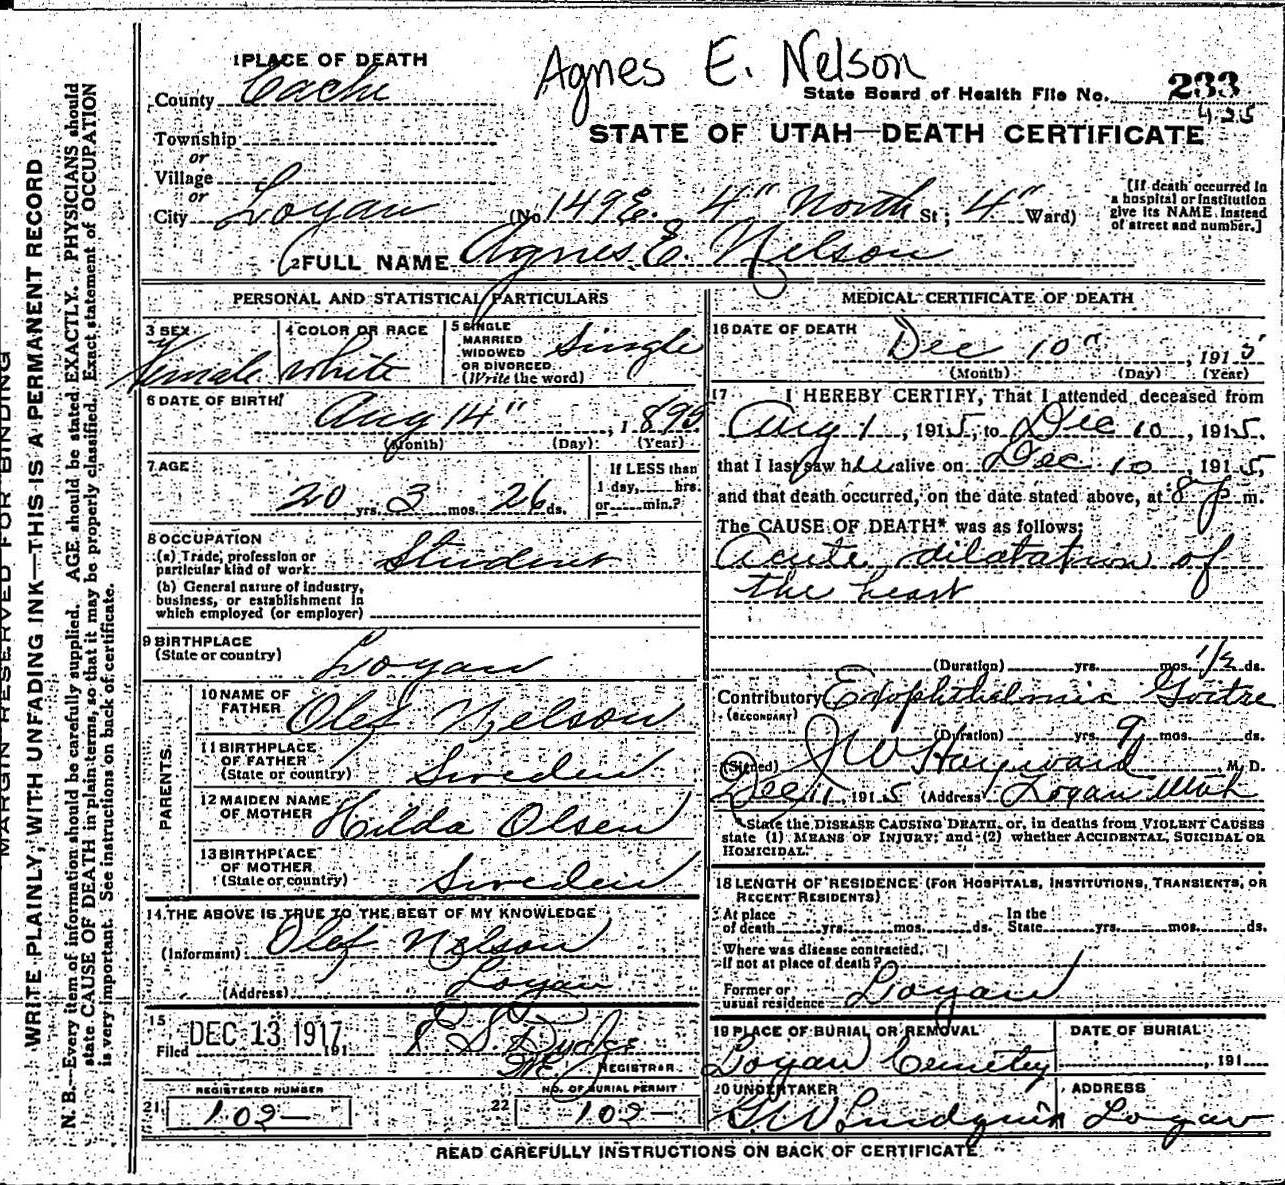 Agnes E. Nelson
1 PLACE OF DEATH
County Cache
State Board of Health File No. 233
425
STATE OF UTAH—DEATH CERTIFICATE
Township
or
Village
or
City Logan (No 149 E. 4" North St; 4" Ward)
[If death occurred in
a hospital or institution
give its NAME instead
of street and number.]
2 FULL NAME Agnes E. Nelson
PERSONAL AND STATISTICAL PARTICULARS
3 SEX
Female
4 COLOR OR RACE
White
5 SINGLE
MARRIED
WIDOWED
OR DIVORCED
(Write the word)
Single
6 DATE OF BIRTH
Aug 14", 1895
(Month) (Day) (Year)
7 AGE
20 yrs. 3 mos. 26 ds.
If LESS than
1 day, hrs.
or min.?
8 OCCUPATION
(a) Trade, profession or
particular kind of work Student
(b) General nature of industry,
business, or establishment in
which employed (or employer)
9 BIRTHPLACE
(State or country) Logan
PARENTS
10 NAME OF
FATHER Olef Nelson
11 BIRTHPLACE
OF FATHER
(State or country) Sweden
12 MAIDEN NAME
OF MOTHER Hilda Olsen
13 BIRTHPLACE
OF MOTHER
(State or country) Sweden
14 THE ABOVE IS TRUE TO THE BEST OF MY KNOWLEDGE
(Informant) Olef Nelson
(Address) Logan
15
Filed DEC 13 1917 191
REGISTRAR
REGISTERED NUMBER
21 102
NO. OF BURIAL PERMIT
22 102
MEDICAL CERTIFICATE OF DEATH
16 DATE OF DEATH
Dec 10", 1915
(Month) (Day) (Year)
17 I HEREBY CERTIFY, That I attended deceased from
Aug 1, 1915, to Dec 10, 1915,
that I last saw her alive on Dec 10, 1915,
and that death occurred, on the date stated above, at 8 p m.
The CAUSE OF DEATH* was as follows:
Acute dilatation of
the heart
(Duration) yrs. mos. 1/2 ds.
Contributory Exophthelmic Goitre
(SECONDARY)
(Duration) yrs. 9 mos. ds.
(Signed) J W Hayward M. D.
Dec 11, 1915 (Address) Logan Utah
*State the DISEASE CAUSING DEATH, or, in deaths from VIOLENT CAUSES
state (1) MEANS OF INJURY; and (2) whether ACCIDENTAL, SUICIDAL OR
HOMICIDAL.
18 LENGTH OF RESIDENCE (FOR HOSPITALS, INSTITUTIONS, TRANSIENTS, OR
RECENT RESIDENTS)
At place
of death yrs. mos. ds.
In the
State yrs. mos. ds.
Where was disease contracted,
If not at place of death?
Former or
usual residence Logan
19 PLACE OF BURIAL OR REMOVAL
Logan Cemetey
DATE OF BURIAL
191
20 UNDERTAKER
ADDRESS
Logan
READ CAREFULLY INSTRUCTIONS ON BACK OF CERTIFICATE
MARGIN RESERVED FOR BINDING
WRITE PLAINLY, WITH UNFADING INK—THIS IS A PERMANENT RECORD
N. B.—Every item of information should be carefully supplied. AGE should be stated EXACTLY. PHYSICIANS should
state CAUSE OF DEATH in plain terms, so that it may be properly classified. Exact statement of OCCUPATION
is very important. See instructions on back of certificate.